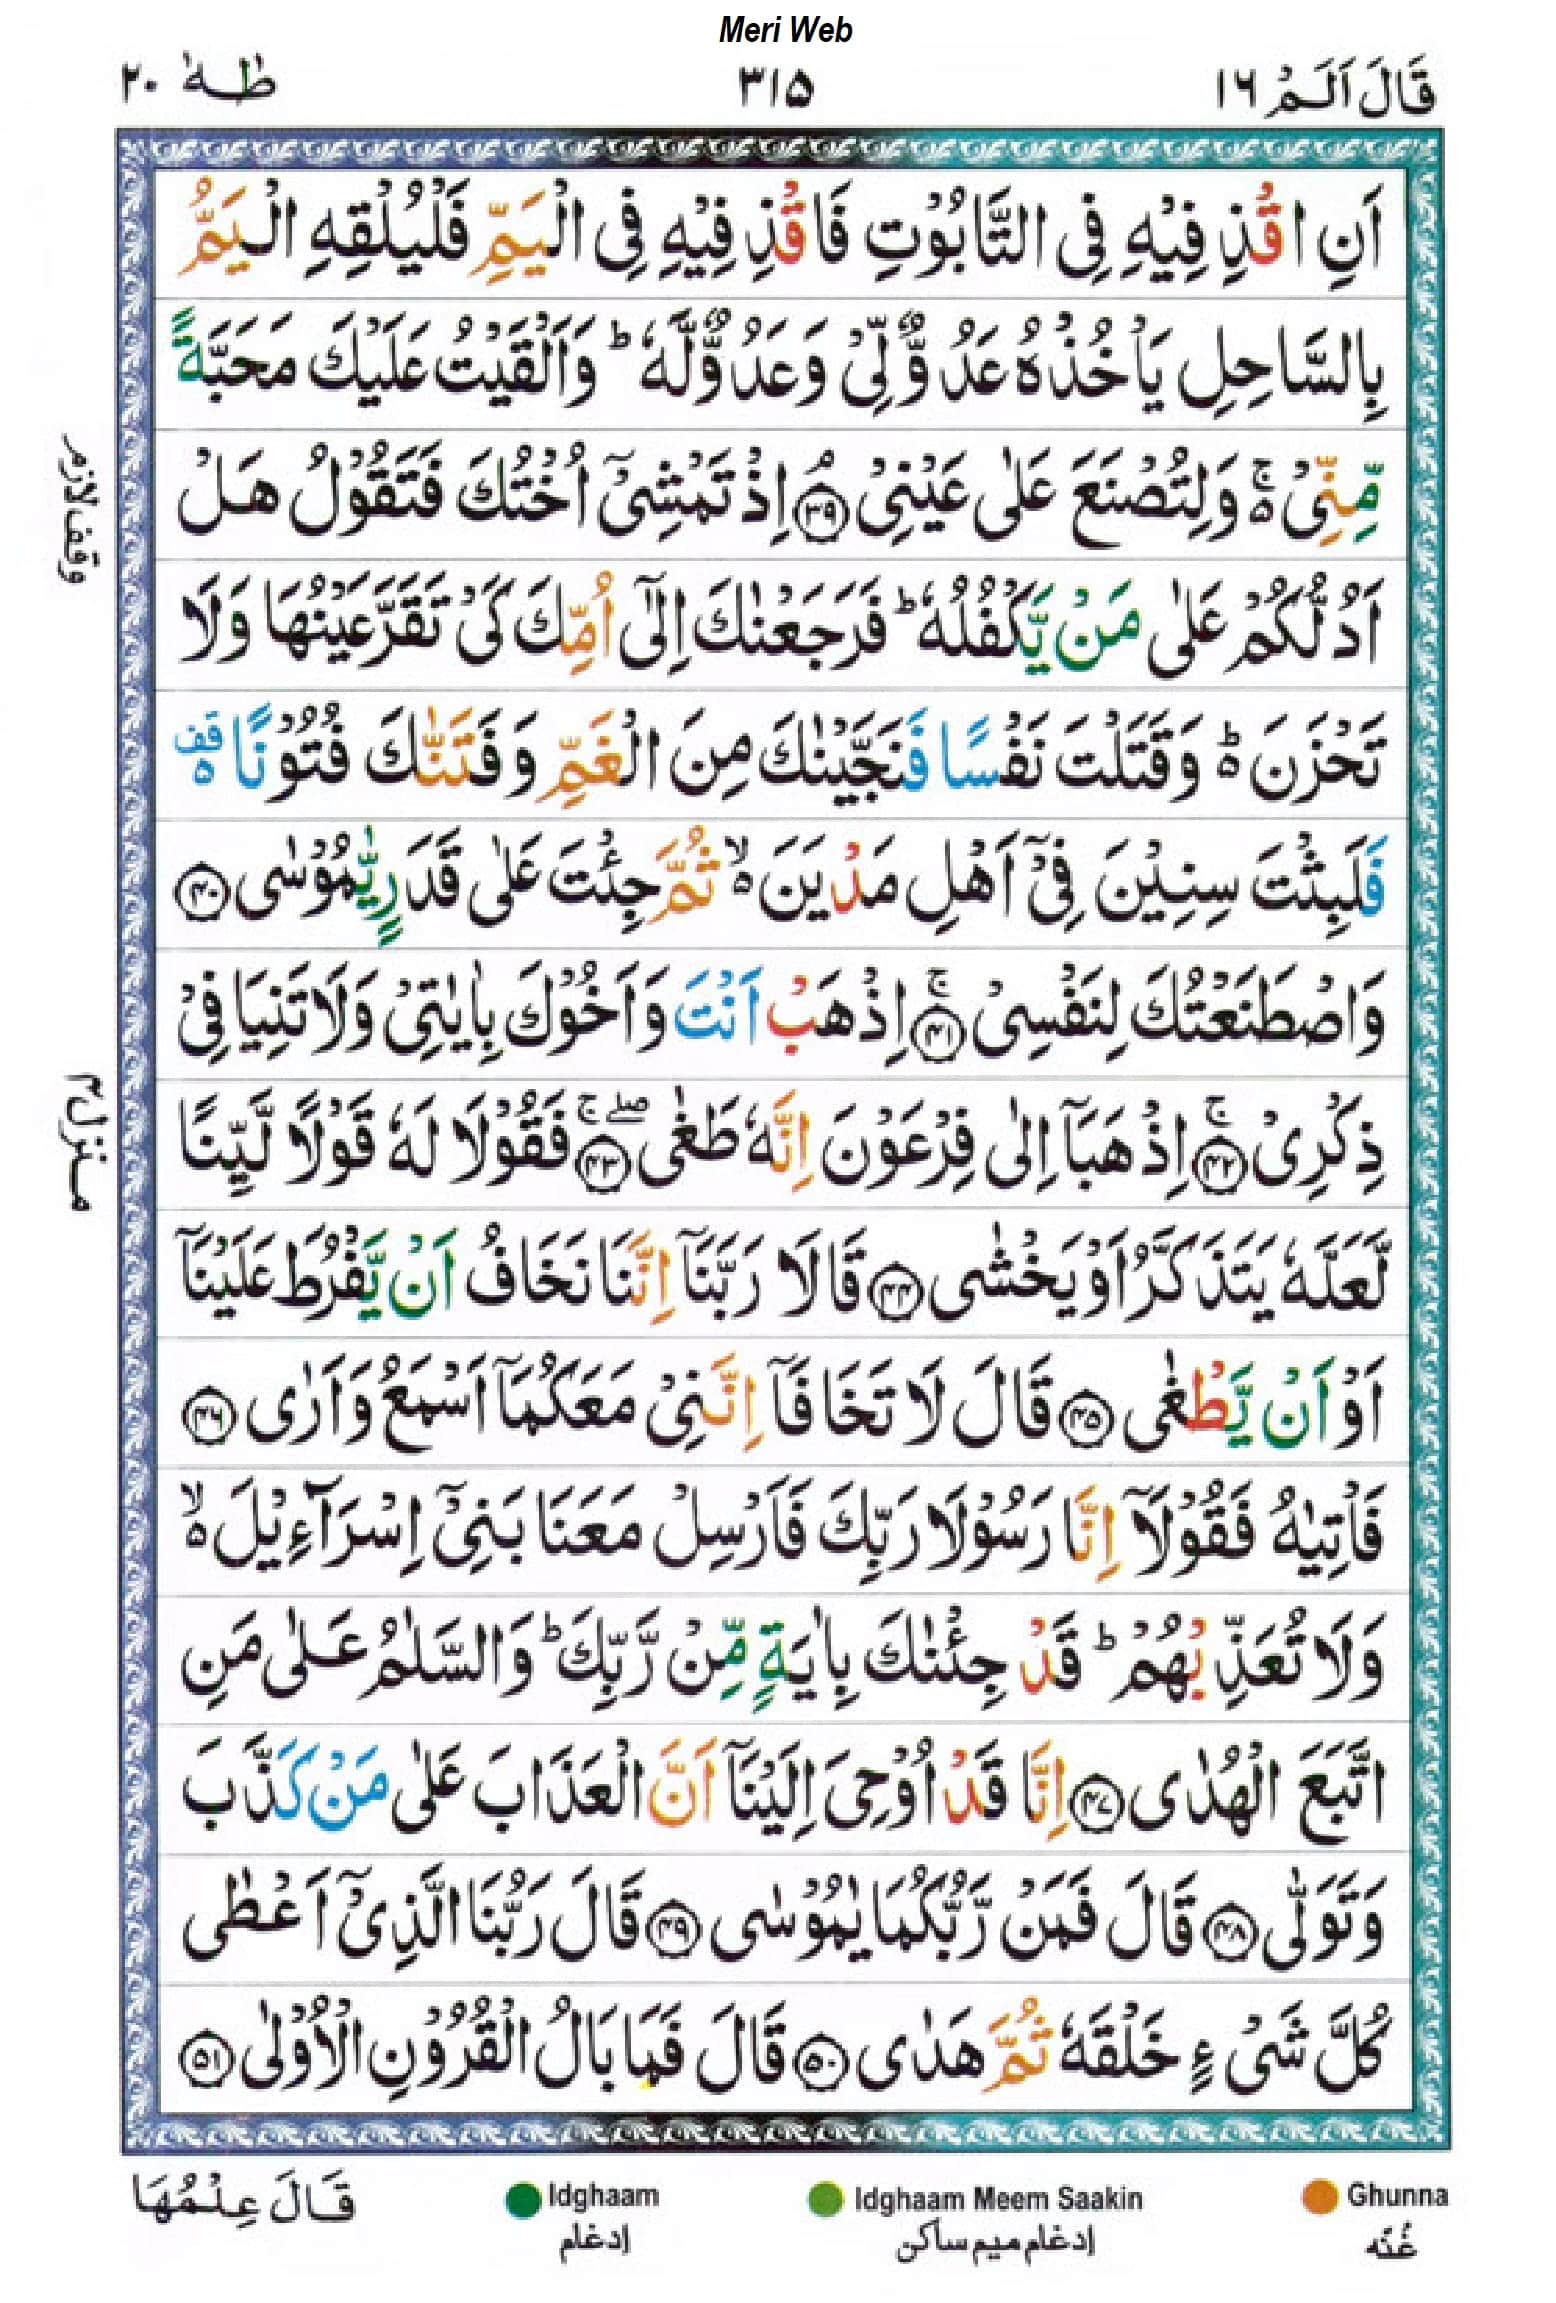 Meri Web
قَالَ اَلَمْ ١٦
٣١٥
طٰهٰ ٢٠
اَنِ اقْذِفِيْهِ فِى التَّابُوْتِ فَاقْذِفِيْهِ فِى الْيَمِّ فَلْيُلْقِهِ الْيَمُّ
بِالسَّاحِلِ يَاْخُذْهُ عَدُوٌّ لِّىْ وَعَدُوٌّ لَّهٗ ؕ وَاَلْقَيْتُ عَلَيْكَ مَحَبَّةً
مِّنِّىْ ۬ۚ وَلِتُصْنَعَ عَلٰى عَيْنِىْ ۘ﴿٣٩﴾ اِذْ تَمْشِىْۤ اُخْتُكَ فَتَقُوْلُ هَلْ
اَدُلُّكُمْ عَلٰى مَنْ يَّكْفُلُهٗ ؕ فَرَجَعْنٰكَ اِلٰٓى اُمِّكَ كَىْ تَقَرَّ عَيْنُهَا وَلَا
تَحْزَنَ ۬ؕ وَقَتَلْتَ نَفْسًا فَنَجَّيْنٰكَ مِنَ الْغَمِّ وَفَتَنّٰكَ فُتُوْنًا ۬قف
فَلَبِثْتَ سِنِيْنَ فِىْۤ اَهْلِ مَدْيَنَ ۬ۙ ثُمَّ جِئْتَ عَلٰى قَدَرٍ يّٰمُوْسٰى ﴿٤٠﴾
وَاصْطَنَعْتُكَ لِنَفْسِىْ ۚ﴿٤١﴾ اِذْهَبْ اَنْتَ وَاَخُوْكَ بِاٰيٰتِىْ وَلَا تَنِيَا فِىْ
ذِكْرِىْ ۚ﴿٤٢﴾ اِذْهَبَاۤ اِلٰى فِرْعَوْنَ اِنَّهٗ طَغٰى ۖۚ﴿٤٣﴾ فَقُوْلَا لَهٗ قَوْلًا لَّيِّنًا
لَّعَلَّهٗ يَتَذَكَّرُ اَوْ يَخْشٰى ﴿٤٤﴾ قَالَا رَبَّنَاۤ اِنَّنَا نَخَافُ اَنْ يَّفْرُطَ عَلَيْنَاۤ
اَوْ اَنْ يَّطْغٰى ﴿٤٥﴾ قَالَ لَا تَخَافَاۤ اِنَّنِىْ مَعَكُمَاۤ اَسْمَعُ وَاَرٰى ﴿٤٦﴾
فَاْتِيٰهُ فَقُوْلَاۤ اِنَّا رَسُوْلَا رَبِّكَ فَاَرْسِلْ مَعَنَا بَنِىْۤ اِسْرَآءِيْلَ ۬ۙ
وَلَا تُعَذِّبْهُمْ ؕ قَدْ جِئْنٰكَ بِاٰيَةٍ مِّنْ رَّبِّكَ ؕ وَالسَّلٰمُ عَلٰى مَنِ
اتَّبَعَ الْهُدٰى ﴿٤٧﴾ اِنَّا قَدْ اُوْحِىَ اِلَيْنَاۤ اَنَّ الْعَذَابَ عَلٰى مَنْ كَذَّبَ
وَتَوَلّٰى ﴿٤٨﴾ قَالَ فَمَنْ رَّبُّكُمَا يٰمُوْسٰى ﴿٤٩﴾ قَالَ رَبُّنَا الَّذِىْۤ اَعْطٰى
كُلَّ شَىْءٍ خَلْقَهٗ ثُمَّ هَدٰى ﴿٥٠﴾ قَالَ فَمَا بَالُ الْقُرُوْنِ الْاُوْلٰى ﴿٥١﴾
وقف لازم
منزل ٤
قَالَ عِلْمُهَا
Idghaam
إدغام
Idghaam Meem Saakin
إدغام ميم ساكن
Ghunna
غُنّه